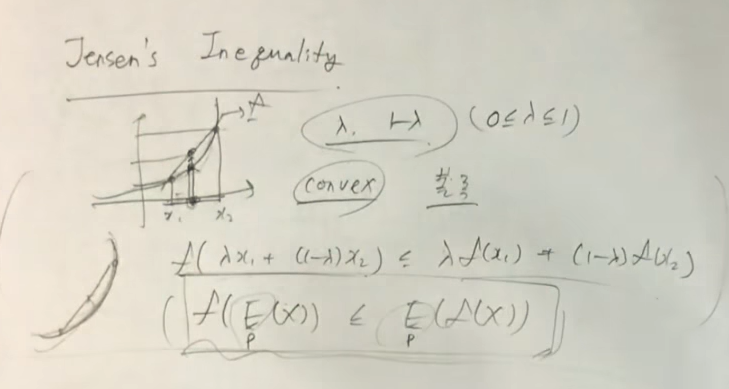 Jensen's Inequality
f
λ, 1-λ (0≤λ≤1)
convex
x₁ x₂
f(λx₁ + (1-λ)x₂) ≤ λf(x₁) + (1-λ)f(x₂)
(f(E(X)) ≤ E(f(X)))
P P